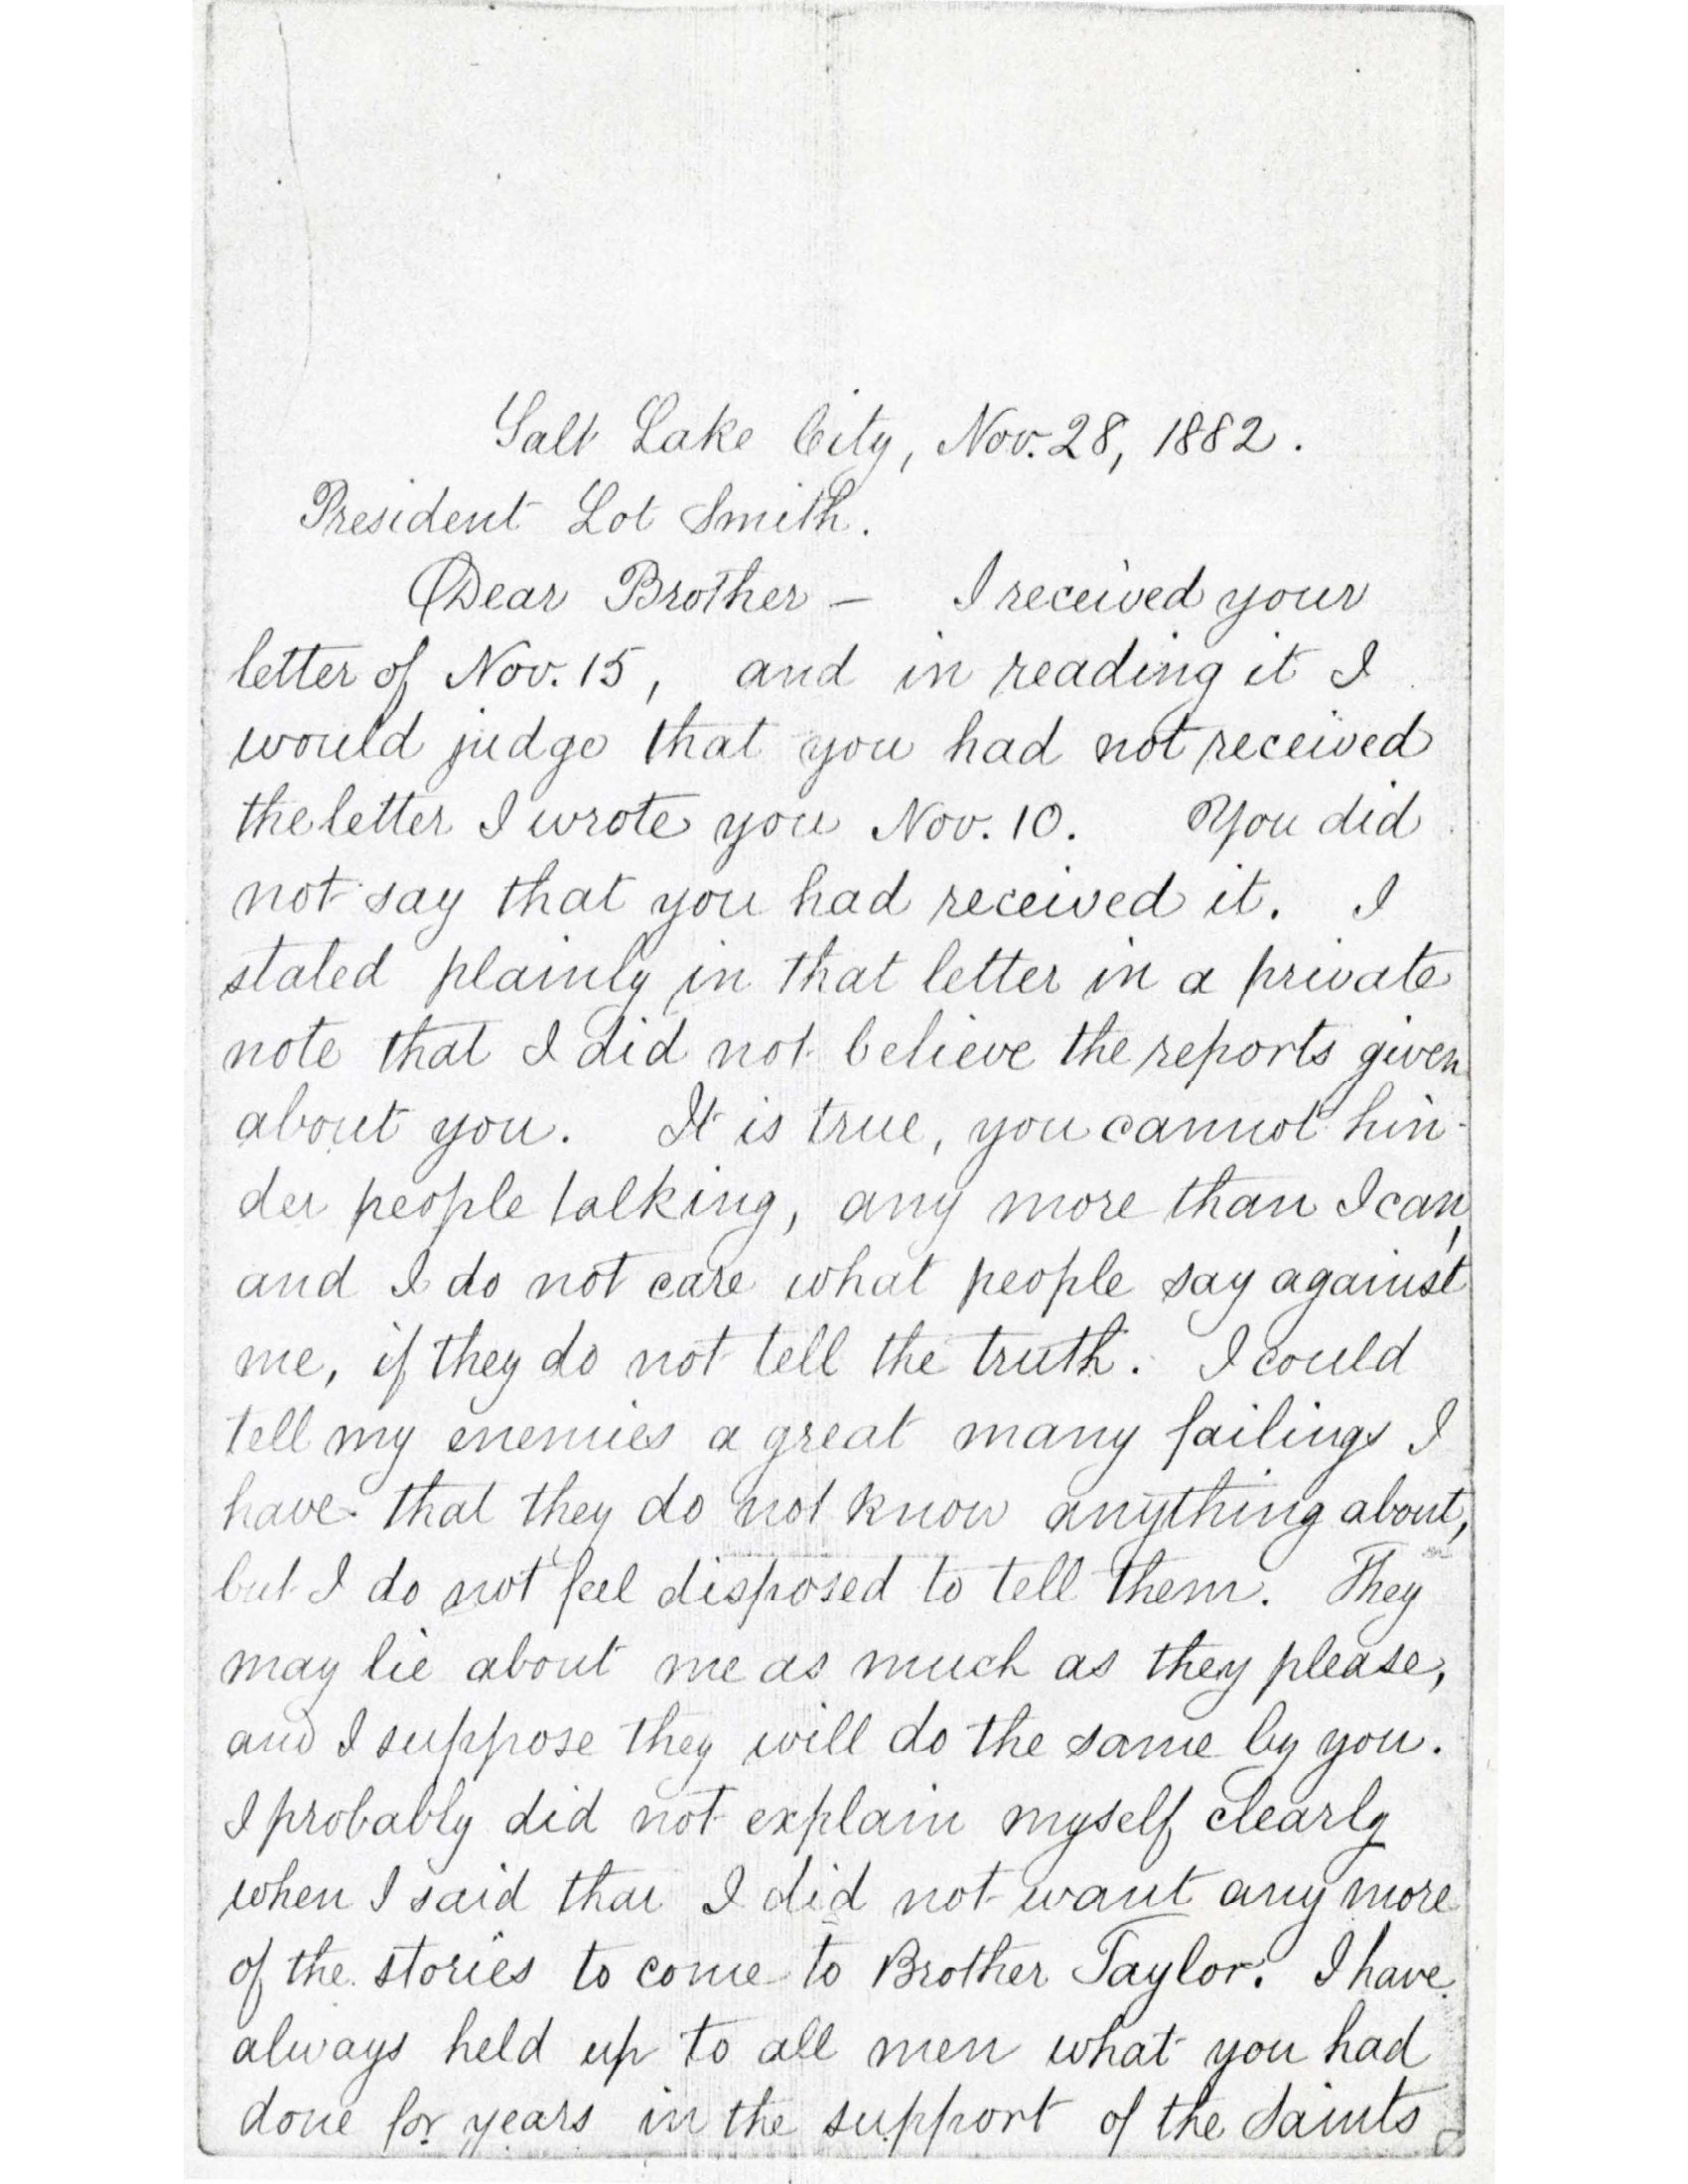 Salt Lake City, Nov. 28, 1882.
President Lot Smith.
Dear Brother — I received your
letter of Nov. 15, and in reading it I
would judge that you had not received
the letter I wrote you Nov. 10. You did
not say that you had received it. I
stated plainly in that letter in a private
note that I did not believe the reports given
about you. It is true, you cannot hin-
der people talking, any more than I can,
and I do not care what people say against
me, if they do not tell the truth. I could
tell my enemies a great many failings I
have that they do not know anything about,
but I do not feel disposed to tell them. They
may lie about me as much as they please,
and I suppose they will do the same by you.
I probably did not explain myself clearly
when I said that I did not want any more
of the stories to come to Brother Taylor. I have
always held up to all men what you had
done for years in the support of the Saints